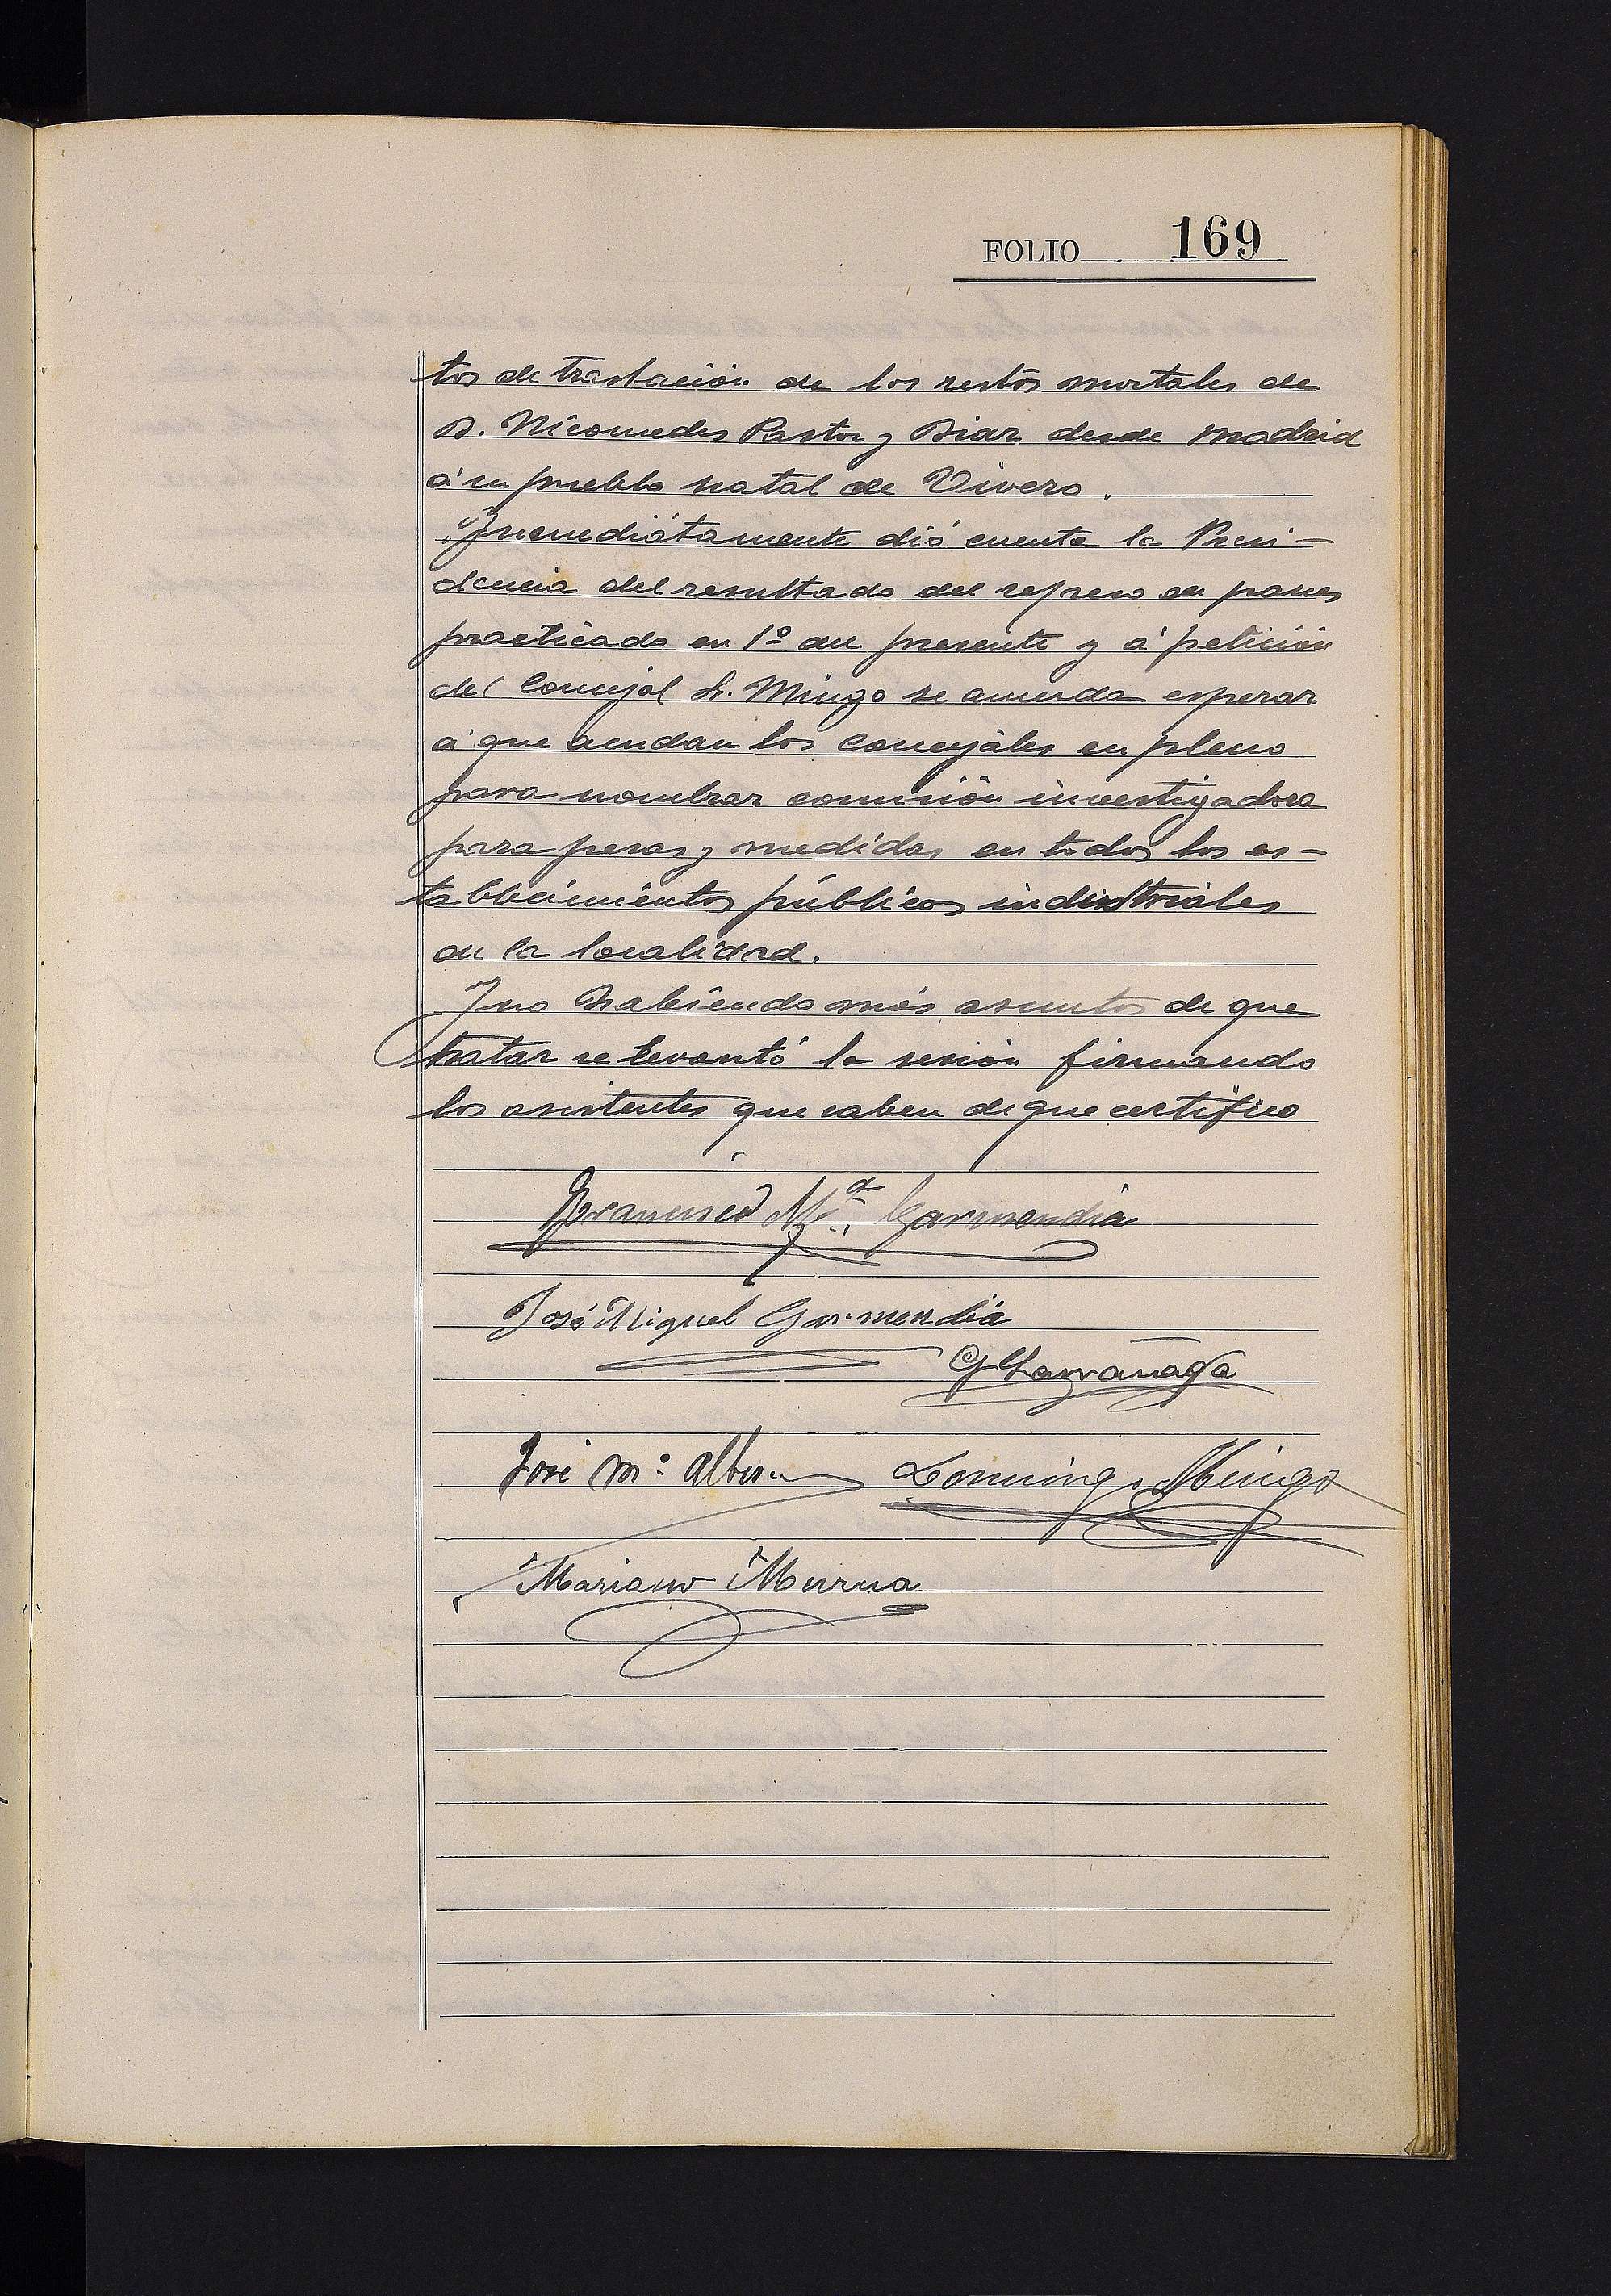 FOLIO 169
tos de traslación de los restos mortales de
D. Nicomedes Pastor y Diaz desde Madrid
á su pueblo natal de Vivero.
Inmediátamente dió cuenta la Presi-
dencia del resultado del repeso de panes
practicado en 1º del presente y á petición
del Concejal Sr. Mingo se acuerda esperar
á que acudan los concejáles en pleno
para nombrar comisión investigadora
para pesas y medidas en todos los es-
tablecimientos públicos industriales
de la localidad.
Y no habiendo más asuntos de que
tratar se levantó la sesión firmando
los asistentes que saben de que certifico
Francisco Mª Garmendia
José Miguel Garmendia
G Larrañaga
José Mª
Domingo Mingo
Mariano Murua